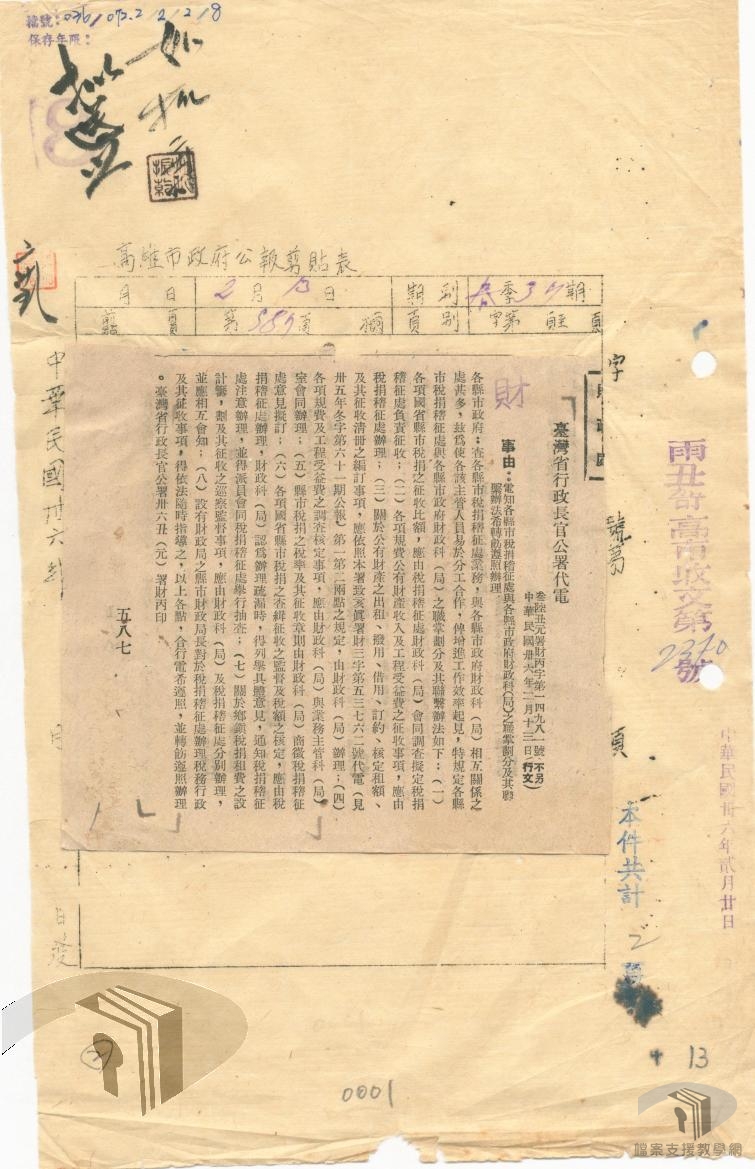 檔號：036/072.2/2/2/8
保存年限：
如擬
擬
高雄市政府公報剪貼表
月 日 2月13日 期別 春季37期
第587頁 頁別 字第 自至 頁
財
臺灣省行政長官公署代電
叁陸丑元署財丙字第一四九八一號
中華民國卅六年二月十三日
（不另行文）
事由：電知各縣市稅捐稽征處與各縣市政府財政科（局）之職掌劃分及其聯
繫辦法希轉飭遵照辦理
各縣市政府：查各縣市稅捐稽征處業務，與各縣市政府財政科（局）相互關係之
處甚多，茲爲使各該主管人員易於分工合作，俾增進工作效率起見，特規定各縣
市稅捐稽征處與各縣市政府財政科（局）之職掌劃分及其聯繫辦法如下：（一）
各項國省縣市稅捐之征收比額，應由稅捐稽征處財政科（局）會同調查擬定稅捐
稽征處負責征收；（二）各項規費公有財產收入及工程受益費之征收事項，應由
稅捐稽征處辦理；（三）關於公有財產之出租、撥用、借用、訂約、核定租額、
及其征收清冊之編訂事項，應依照本署致亥眞署財三字第五三七六二號代電（見
卅五年冬字第六十一期公報）第一第二兩點之規定，由財政科（局）辦理；（四）
各項規費及工程受益費之調查核定事項，應由財政科（局）與業務主管科（局）
室會同辦理；（五）縣市稅捐之稅率及其征收章則由財政科（局）商徵稅捐稽征
處意見擬訂；（六）各項國省縣市稅捐之查緝征收之監督及稅額之核定，應由稅
捐稽征處辦理，財政科（局）認爲辦理疏漏時，得列舉具體意見，通知稅捐稽征
處注意辦理，並得派員會同稅捐稽征處舉行抽查；（七）關於鄉鎮稅捐租費之設
計籌，劃及其征收之巡察監督事項，應由財政科（局）及稅捐稽征處分別辦理，
並應相互會知；（八）設有財政局之縣市財政局長對於稅捐稽征處辦理稅務行政
及其征收事項，得依法隨時指導之，以上各點，合行電希遵照，並轉飭遵照辦理
。臺灣省行政長官公署卅六丑（元）署財丙印
五八七
字
號第
頁
雨丑 高市收文第2310號
中華民國卅六年貳月廿日
本件共計2頁
中華民國卅六年
月
日發
13
0001
檔案支援教學網